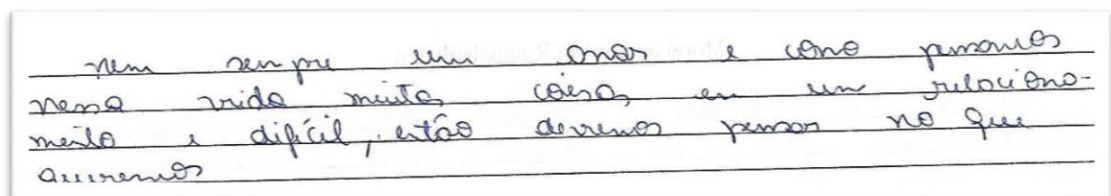 nem sempre um amor e como pensamos
nessa vida muitas coisas em um relaciona-
mento e difícil, então devemos pensar no que
queremos